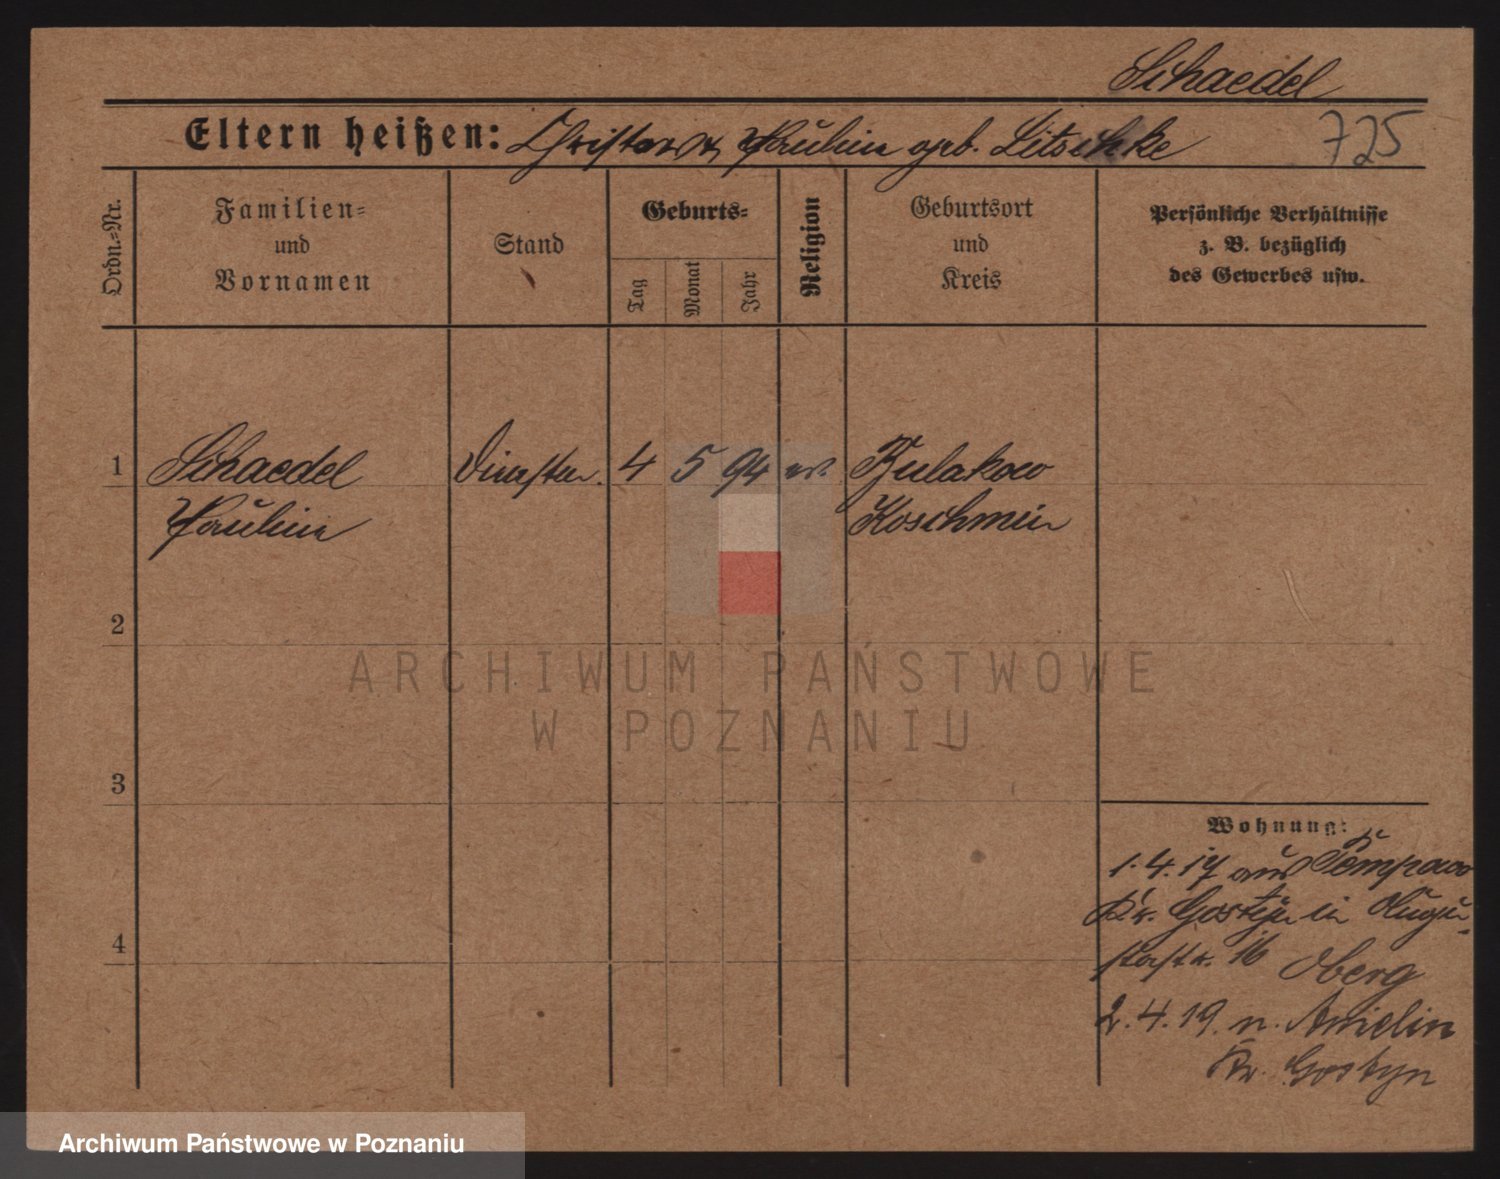 Schaedel
Eltern heißen: Christian u. Paulin geb. Litschke
725
Ordn.-Nr.
Familien-
und
Vornamen
Stand
Geburts-
Tag
Monat
Jahr
Religion
Geburtsort
und
Kreis
Persönliche Verhältnisse
z. B. bezüglich
des Gewerbes usw.
1
Schaedel
Paulin
4 5 94 ev.
Bulakow
Koschmin
2
3
4
Wohnung:
1.4.17 aus
Kr. Gostyn in Augu-
stastr. 16 Oberg
2.4.19. n. Anielin
Kr. Gostyn
ARCHIWUM PAŃSTWOWE
W POZNANIU
Archiwum Państwowe w Poznaniu